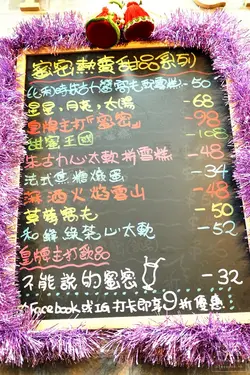 蜜密熱賣甜品系列
心太軟拼雪糕 -50
星星、月亮、太陽 -68
皇牌主打『蜜密』 -98
甜蜜王國 -108
朱古力心太軟拼雪糕 -48
法式焦糖燉蛋 -34
火焰雪山 -48
草莓窩夫 -50
和綠茶心太軟 -52
皇牌主打飲品
不能說的蜜密 -32
Facebook 打卡即享9折優惠